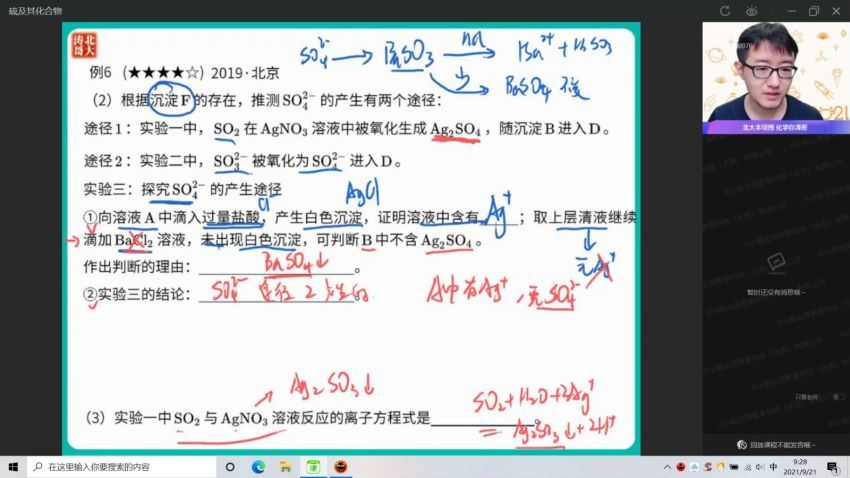 硫及其化合物
北大
涛哥
例6 (★★★★☆) 2019·北京
SO₄²⁻ → BaSO₃ → Ba²⁺ + H₂SO₃
BaSO₄
(2) 根据沉淀F的存在，推测SO₄²⁻的产生有两个途径：
途径1：实验一中，SO₂在AgNO₃溶液中被氧化生成Ag₂SO₄，随沉淀B进入D。
途径2：实验二中，SO₃²⁻被氧化为SO₄²⁻进入D。
实验三：探究SO₄²⁻的产生途径
AgCl
Cl
①向溶液A中滴入过量盐酸，产生白色沉淀，证明溶液中含有 Ag⁺ ；取上层清液继续
滴加BaCl₂溶液，未出现白色沉淀，可判断B中不含Ag₂SO₄。
无Ag⁺
作出判断的理由： BaSO₄↓ 。
②实验三的结论： SO₄²⁻ 途径2产生的
A中有Ag⁺，无SO₄²⁻
Ag₂SO₃↓
SO₂+H₂O+2Ag⁺
(3) 实验一中SO₂与AgNO₃溶液反应的离子方程式是 。
= Ag₂SO₃↓+2H⁺
北大本硕博 化学你涛哥
暂时还没有消息哦~
只看老师
回放课程不能发言哦~
在这里输入你要搜索的内容
中
9:28
2021/9/21